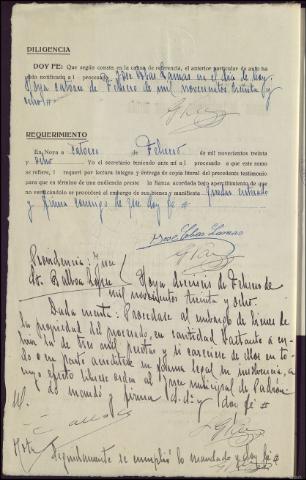 DILIGENCIA
DOY FE: Que según consta en la causa de referencia, el anterior particular de auto ha
sido notificado a l procesado Jose Tobas Lamas en el dia de hoy.
Noya catorce de Febrero de mil novecientos treinta y
ocho.
REQUERIMIENTO
En Noya a catorce de Febrero de mil novecientos treinta
y ocho Yo el secretario teniendo ante mi a l procesado a que este sumario
se refiere, l requerí por lectura íntegra y entrega de copia literal del precedente testimonio
para que en término de una audiencia preste la fianza acordada bajo apercibimiento de que
no verificándolo se procederá al embargo de sus bienes y manifestó quedar enterado
y firma conmigo de que doy fe #
Jose Tobas Lamas
Providencia: Juez
Sr. Balboa López
Noya dieciseis de Febrero de
mil novecientos treinta y ocho.
Dada cuenta: Procedase al embargo de bienes de
la propiedad del procesado, en cantidad bastante a cu-
brir la de tres mil pesetas y si careciese de ellos en to-
do o en parte acreditese en forma legal su insolvencia, a
cuyo efecto librese orden al Juez municipal de Padrón.
Lo mandó y firma S.S. doy fe #
Nota
Seguidamente se cumplió lo mandado y doy fe #